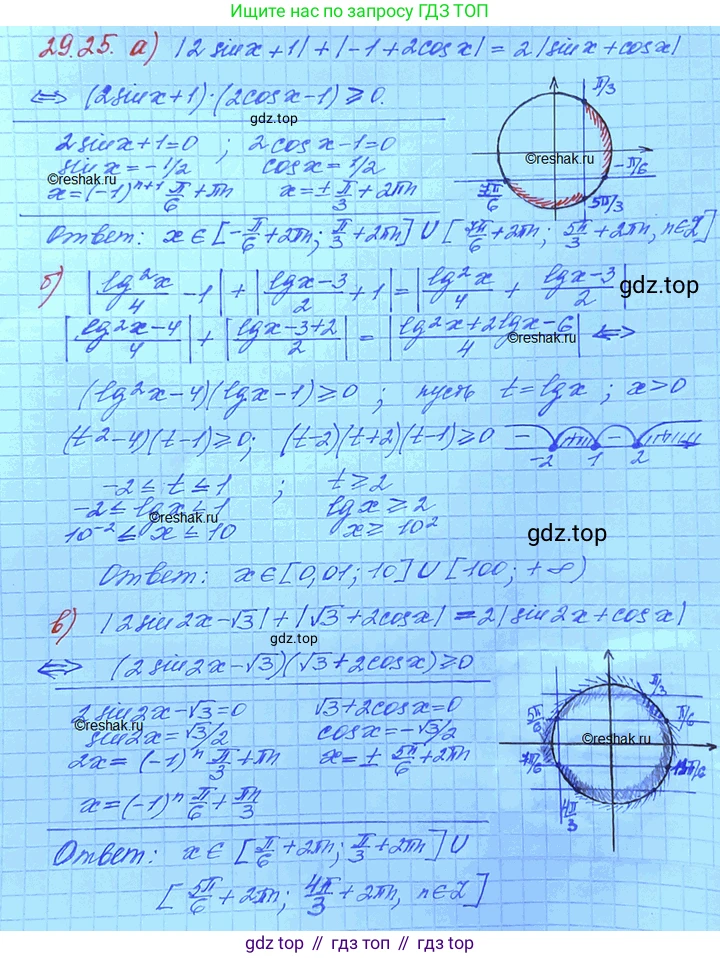 Ищите ответы по запросу ГДЗ ТОП
29.25. а) |2 sin x + 1| + |-1 + 2cos x| = 2 |sin x + cos x|
⇔ (2sin x + 1)·(2cos x - 1) ⩾ 0.
gdz.top
2 sin x + 1 = 0 ; 2 cos x - 1 = 0
sin x = -1/2 cos x = 1/2
©reshak.ru
x = (-1)ⁿ⁺¹ π/6 + πn x = ± π/3 + 2πn
π/3
©reshak.ru
-π/6
7π/6 5π/3
Ответ: x ∈ [-π/6 + 2πn; π/3 + 2πn] U [7π/6 + 2πn; 5π/3 + 2πn, n∈Z]
б) |lg²x/4 - 1| + |lgx-3/2 + 1| = |lg²x/4 + lgx-3/2|
gdz.top
|lg²x-4/4| + |lgx-3+2/2| = |lg²x+2lgx-6/4| ⇔
©reshak.ru
(lg²x - 4)(lgx - 1) ⩾ 0 ; пусть t = lgx ; x > 0
(t² - 4)(t - 1) ⩾ 0; (t-2)(t+2)(t-1) ⩾ 0
- + - +
-2 1 2
-2 ⩽ t ⩽ 1 ; t ⩾ 2
-2 ⩽ lgx ⩽ 1 lgx ⩾ 2
©reshak.ru
10⁻² ⩽ x ⩽ 10 x ⩾ 10²
gdz.top
Ответ: x ∈ [0,01; 10] U [100; +∞)
в) |2 sin 2x - √3| + |√3 + 2cos x| = 2 |sin 2x + cos x|
gdz.top
⇔ (2 sin 2x - √3)(√3 + 2cos x) ⩾ 0
2 sin 2x - √3 = 0 √3 + 2cos x = 0
©reshak.ru
sin 2x = √3/2 cos x = -√3/2
2x = (-1)ⁿ π/3 + πn x = ± 5π/6 + 2πn
x = (-1)ⁿ π/6 + πn/3
π/3
5π/6 π/6
©reshak.ru
7π/6
4π/3
Ответ: x ∈ [π/6 + 2πn; π/3 + 2πn] U
[5π/6 + 2πn; 4π/3 + 2πn, n∈Z]
gdz.top // гдз.top // гдз.топ